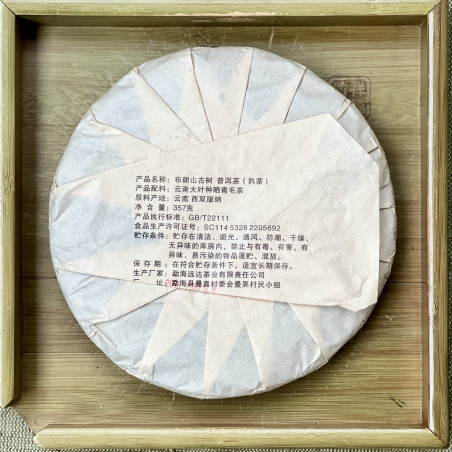 产品名称：布朗山古树 普洱茶（熟茶）
产品配料：云南大叶种晒青毛茶
原料产地：云南 西双版纳
净 含 量：357克
产品执行标准：GB/T22111
食品生产许可证号：SC114 5328 2205692
贮存条件：贮存在清洁、避光、通风、防潮、干燥、
无异味的库房内，禁止与有毒、有害、有
异味、易污染的物品混贮、混放。
保 存 期：在符合贮存条件下，适宜长期保存。
生产厂家：勐海远达茶业有限责任公司
厂 址：勐海县曼真村委会曼黑村民小组